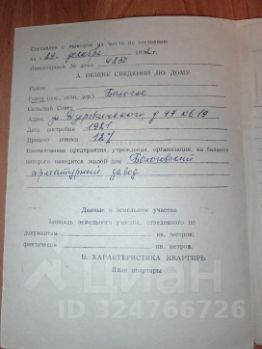 Составлен с выездом на место по состоянию
на «29» декабря 1992 г.
Инвентарный № дела 4830
А. ОБЩИЕ СВЕДЕНИЯ ПО ДОМУ
Район
Город (пос., нас. пункт) Бологое
Сельский Совет
Адрес ул Дзержинского д 49 кв 19
Дата постройки 1921
Процент износа 12%
Наименование предприятия, учреждения, организации, на балансе
которого находится жилой дом Бологовский
арматурный завод
Данные о земельном участке
Площадь земельного участка, отведенного по
документам кв. метров;
фактически кв. метров.
Б. ХАРАКТЕРИСТИКА КВАРТИРЫ
План квартиры
циан
ID 324766726